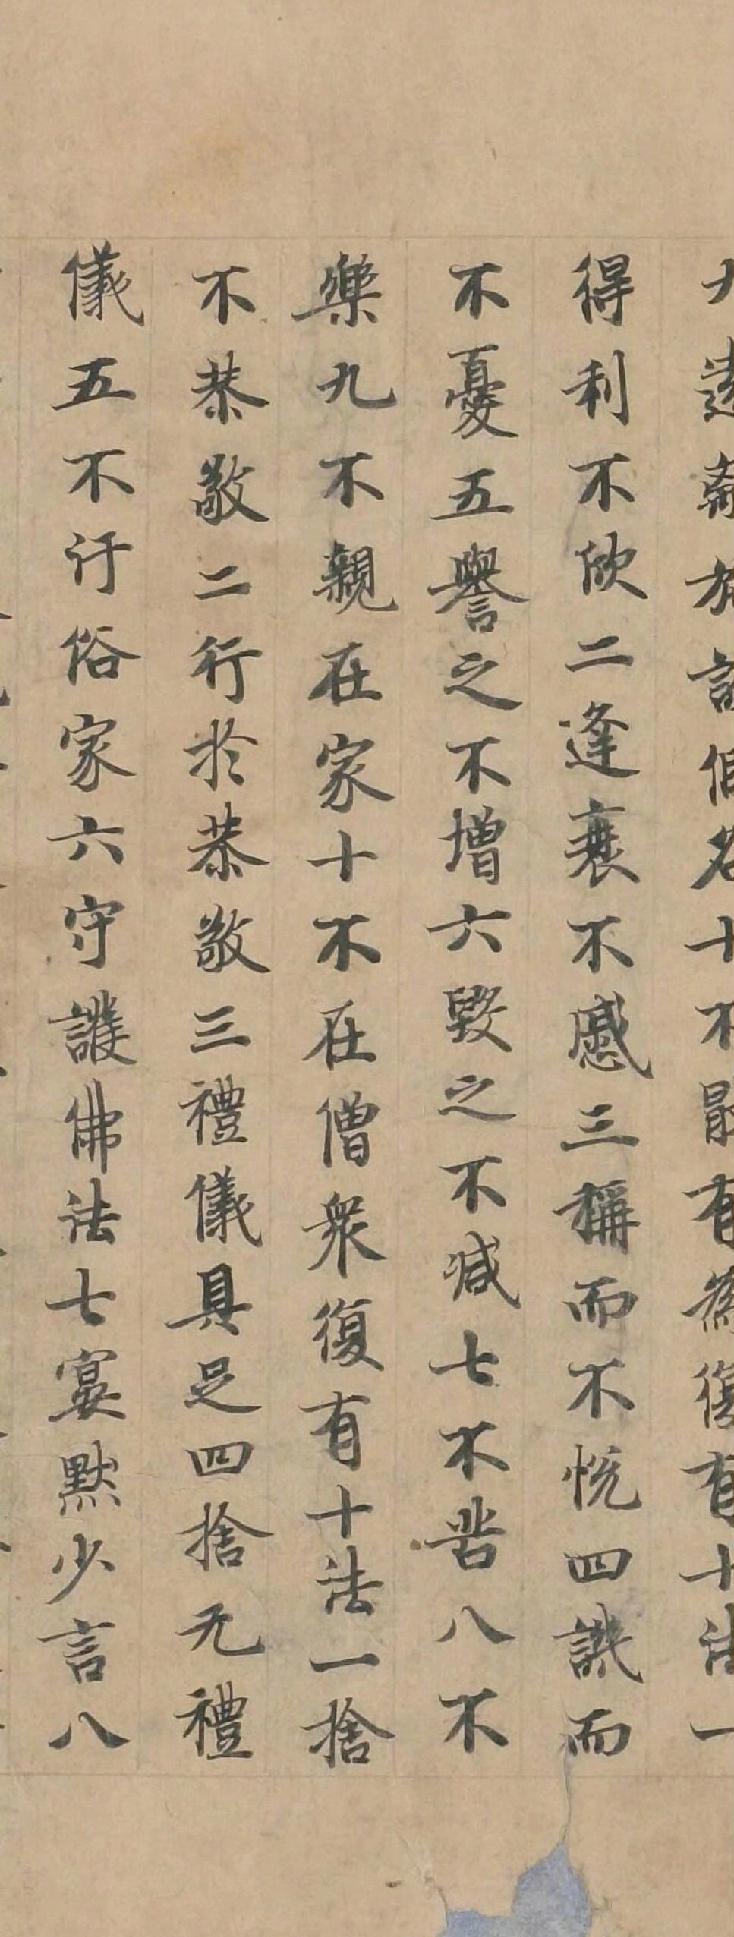 九遠離施設假名十不顯有為復有十法一
得利不欣二逢衰不慼三稱而不悅四譏而
不憂五譽之不增六毀之不減七不苦八不
樂九不親在家十不在僧眾復有十法一捨
不恭敬二行於恭敬三禮儀具足四捨无禮
儀五不汙俗家六守護佛法七宴默少言八